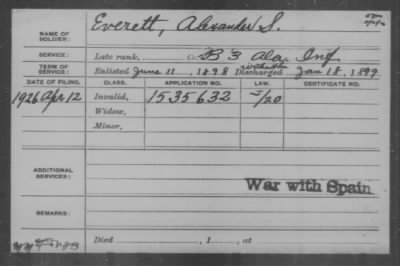 NAME OF SOLDIER: Everett, Alexander S.
SERVICE: Late rank, Co. B 3 Ala. Inf
TERM OF SERVICE: Enlisted June 11, 1898 Discharged Jan 18, 1899
DATE OF FILING. CLASS. APPLICATION NO. LAW. CERTIFICATE NO.
1926 Apr 12 Invalid, 1535632
Widow,
Minor,
ADDITIONAL SERVICES:
War with Spain
REMARKS:
Died , 1 , at